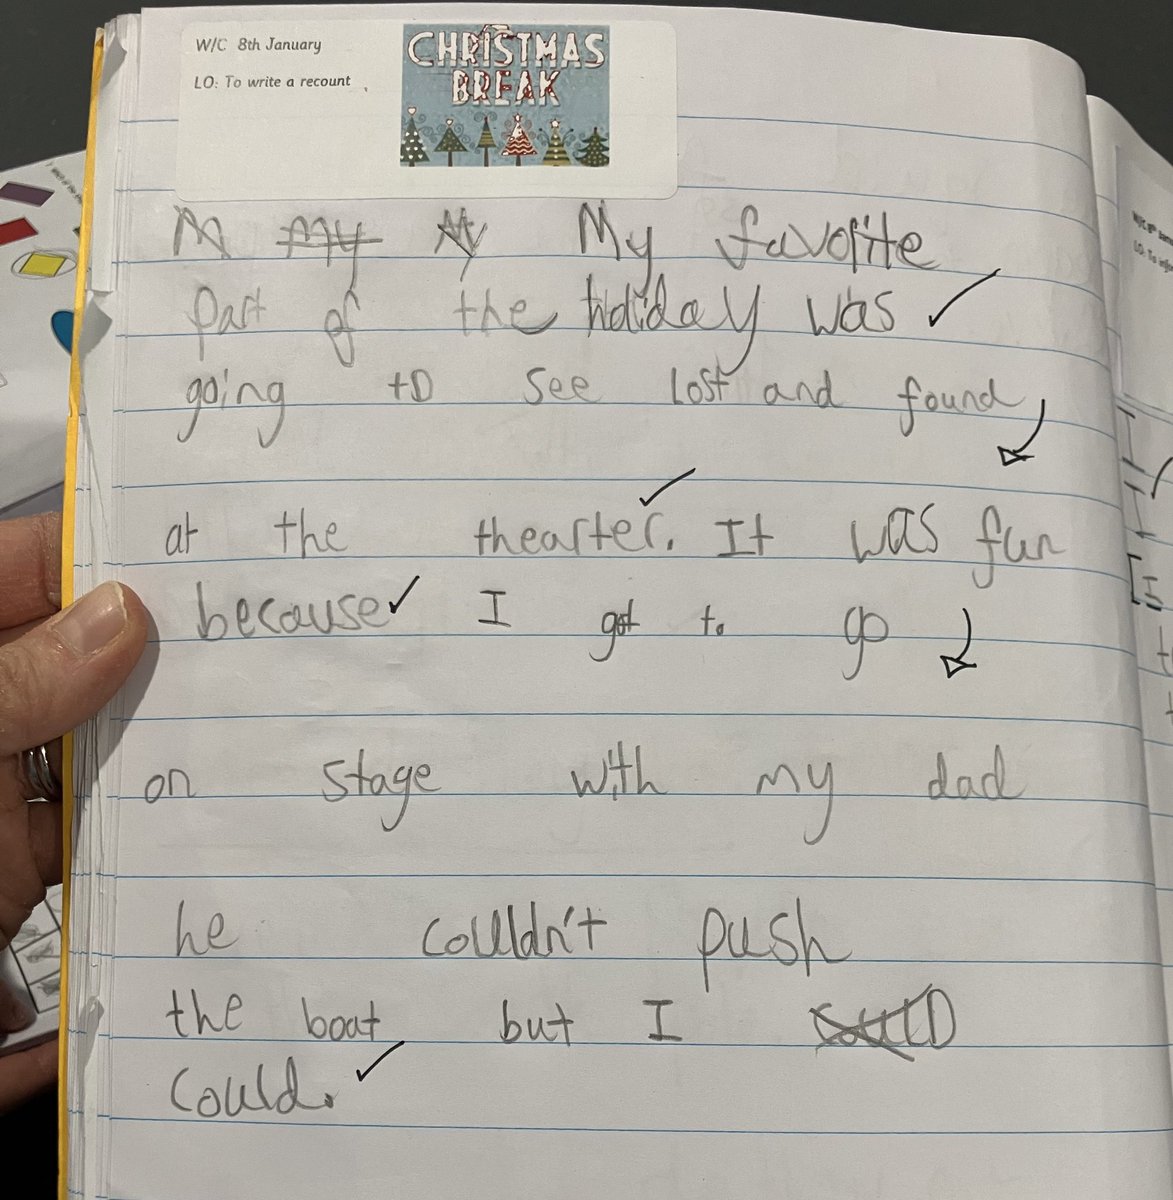 W/C 8th January
LO: To write a recount
CHRISTMAS
BREAK
M My My My favorite
part of the holiday was
going to see lost and found
at the thearter. It was fun
because I got to go
on stage with my dad
he couldn't push
the boat but I
could.